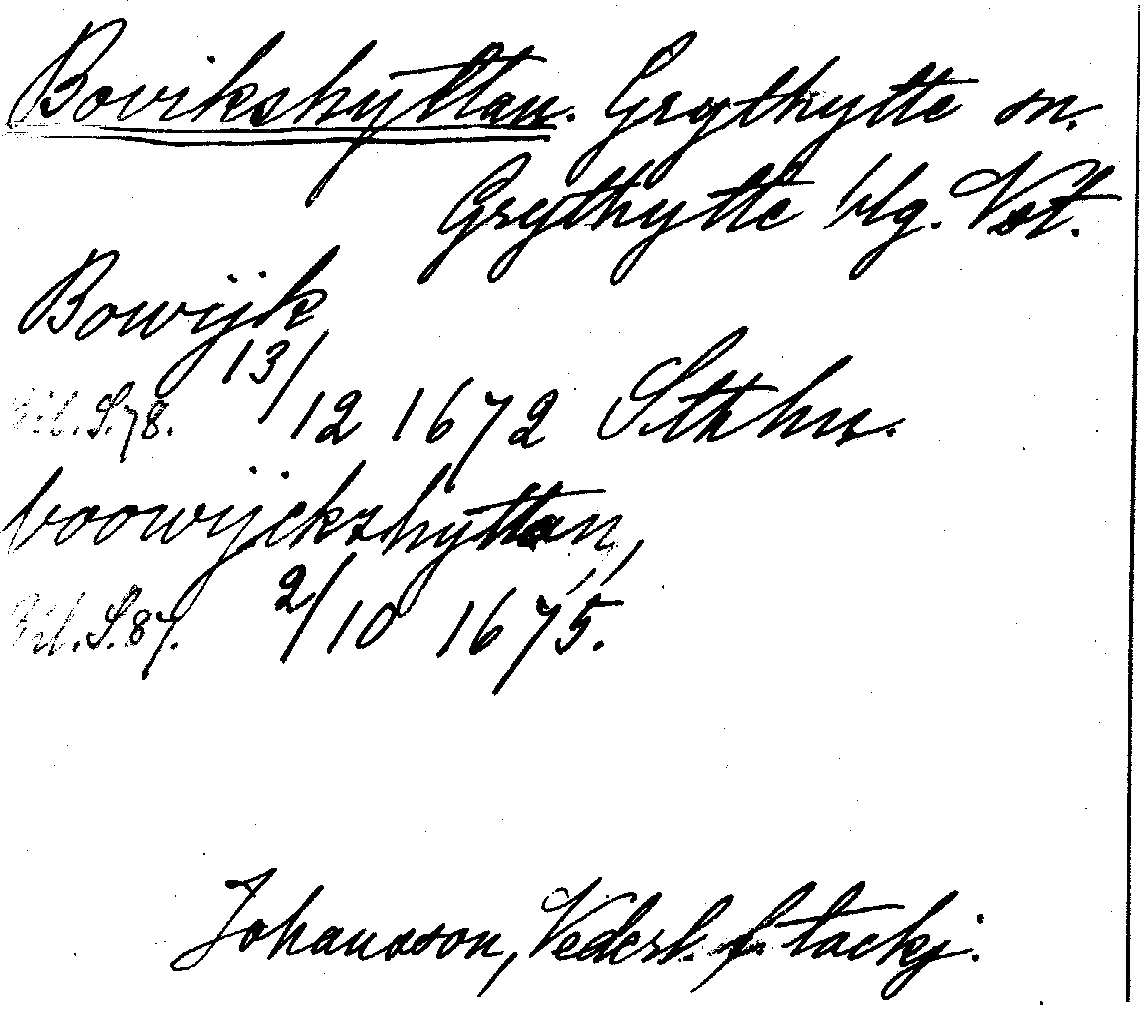 Bovikshyttan. Grythytte sn.
Grythytte blg. Vstl.
Bowijk
13/12 1672 Sthhn.
Bil. S. 78.
boowijckshyttan,
2/10 1675.
Bil. S. 87.
Johansson, Vederl. f. tackj.